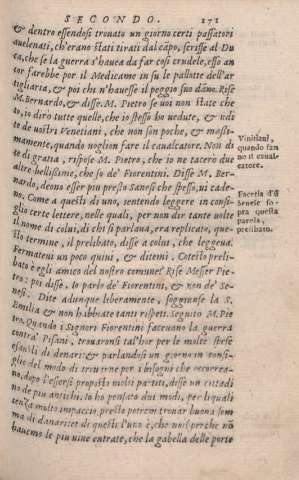 SECONDO. 171
& dentro essendosi trouato un giorno certi passatori
auelenati, ch'erano stati tirati dal cāpo, scrisse al Du
ca, che se la guerra s'hauea da far cosi crudele, esso an
tor farebbe por il Medicame in su le pallotte dell'ar
tigliaria, & poi chi n'hauesse il peggio suo dāno. Rise
M. Bernardo, & disse. M. Pietro se uoi non state che
to, io dirò tutte quelle, che io stesso ho uedute, & udi
te de uostri Venetiani, che non son poche, & massi-
mamente, quando uoglion fare il caualcatore. Non di
te di gratia, rispose M. Pietro, che io ne tacerò due
altre bellissime, che so de' Fiorentini. Disse M. Ber-
nardo, deono esser piu presto Sanesi che spesso, ui cade-
no. Come a questi dì uno, sentendo leggere in consi-
glio certe lettere, nelle quali, per non dir tante uolte
il nome di colui, di chi si parlaua, era replicato, que-
sto termine, il prelibato, disse a colui, che leggeua.
Fermateui un poco quiui, & ditemi. Cotesto preli-
bato è egli amico del nostro comune? Rise Messer Pie
tro: poi disse, Io parlo de' Fiorentini, & non de' Se-
nesi. Dite adunque liberamente, soggiunse la S.
Emilia & non habbiate tanti rispetti. Seguitò M. Pie
tro. Quando i Signori Fiorentini faceuano la guerra
contra' Pisani, trouaronsi tal'hor per le molte spese
esausti di denari: & parlandosi un giorno in consi-
glio del modo di trouarne per i bisogni che occorrea-
no, dopo l'essersi proposto molti partiti, disse un cittadi
no de piu antichi. Io ho pensato dui modi, per li quali
senza molto impaccio, presto potrem trouar buona som
ma di danari: & di questi l'uno è, che noi (perche nō
hauemo le piu uiue entrate, che la gabella delle porte
Vinitiani,
quando fan
no il caual-
catore.
Facetia d'ū
Senese so
pra questa
parola,
prelibato.